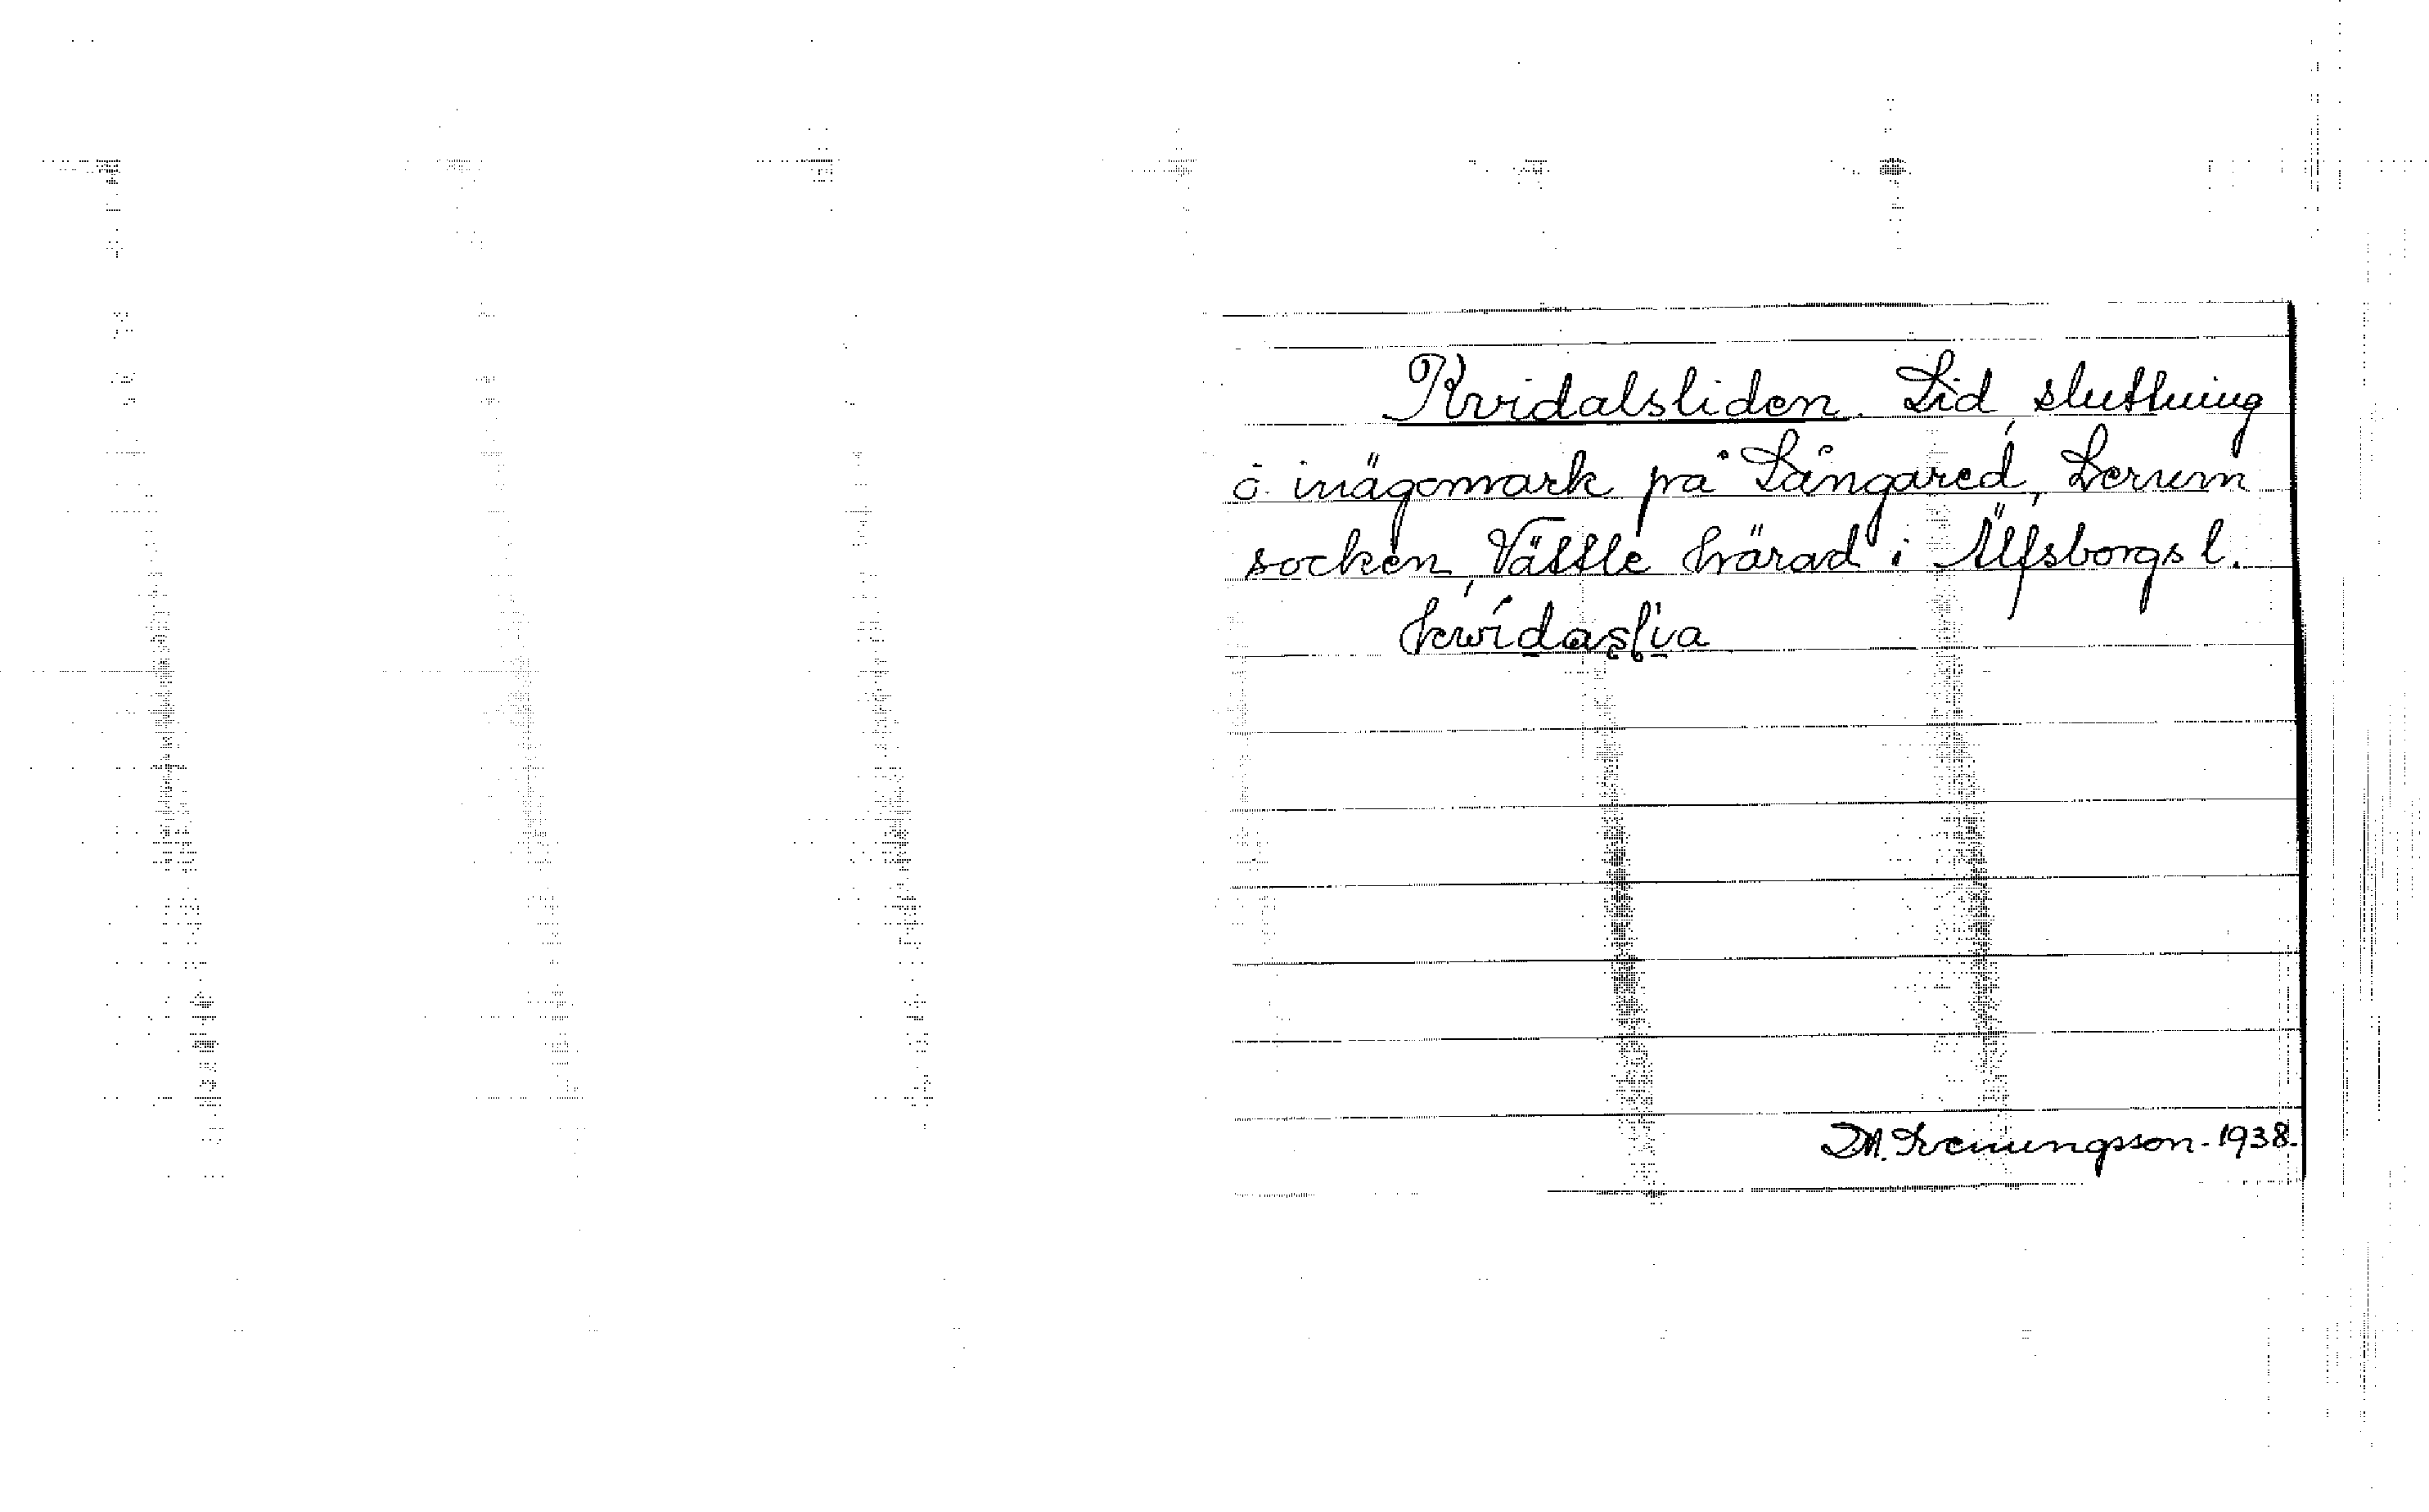 Kvidalsliden. Lid, sluttning
å inägomark på Långared, Lerum
socken, Vättle härad i Älfsborgs l.
kwidaslia
D.M. Svenningsson. 1938.